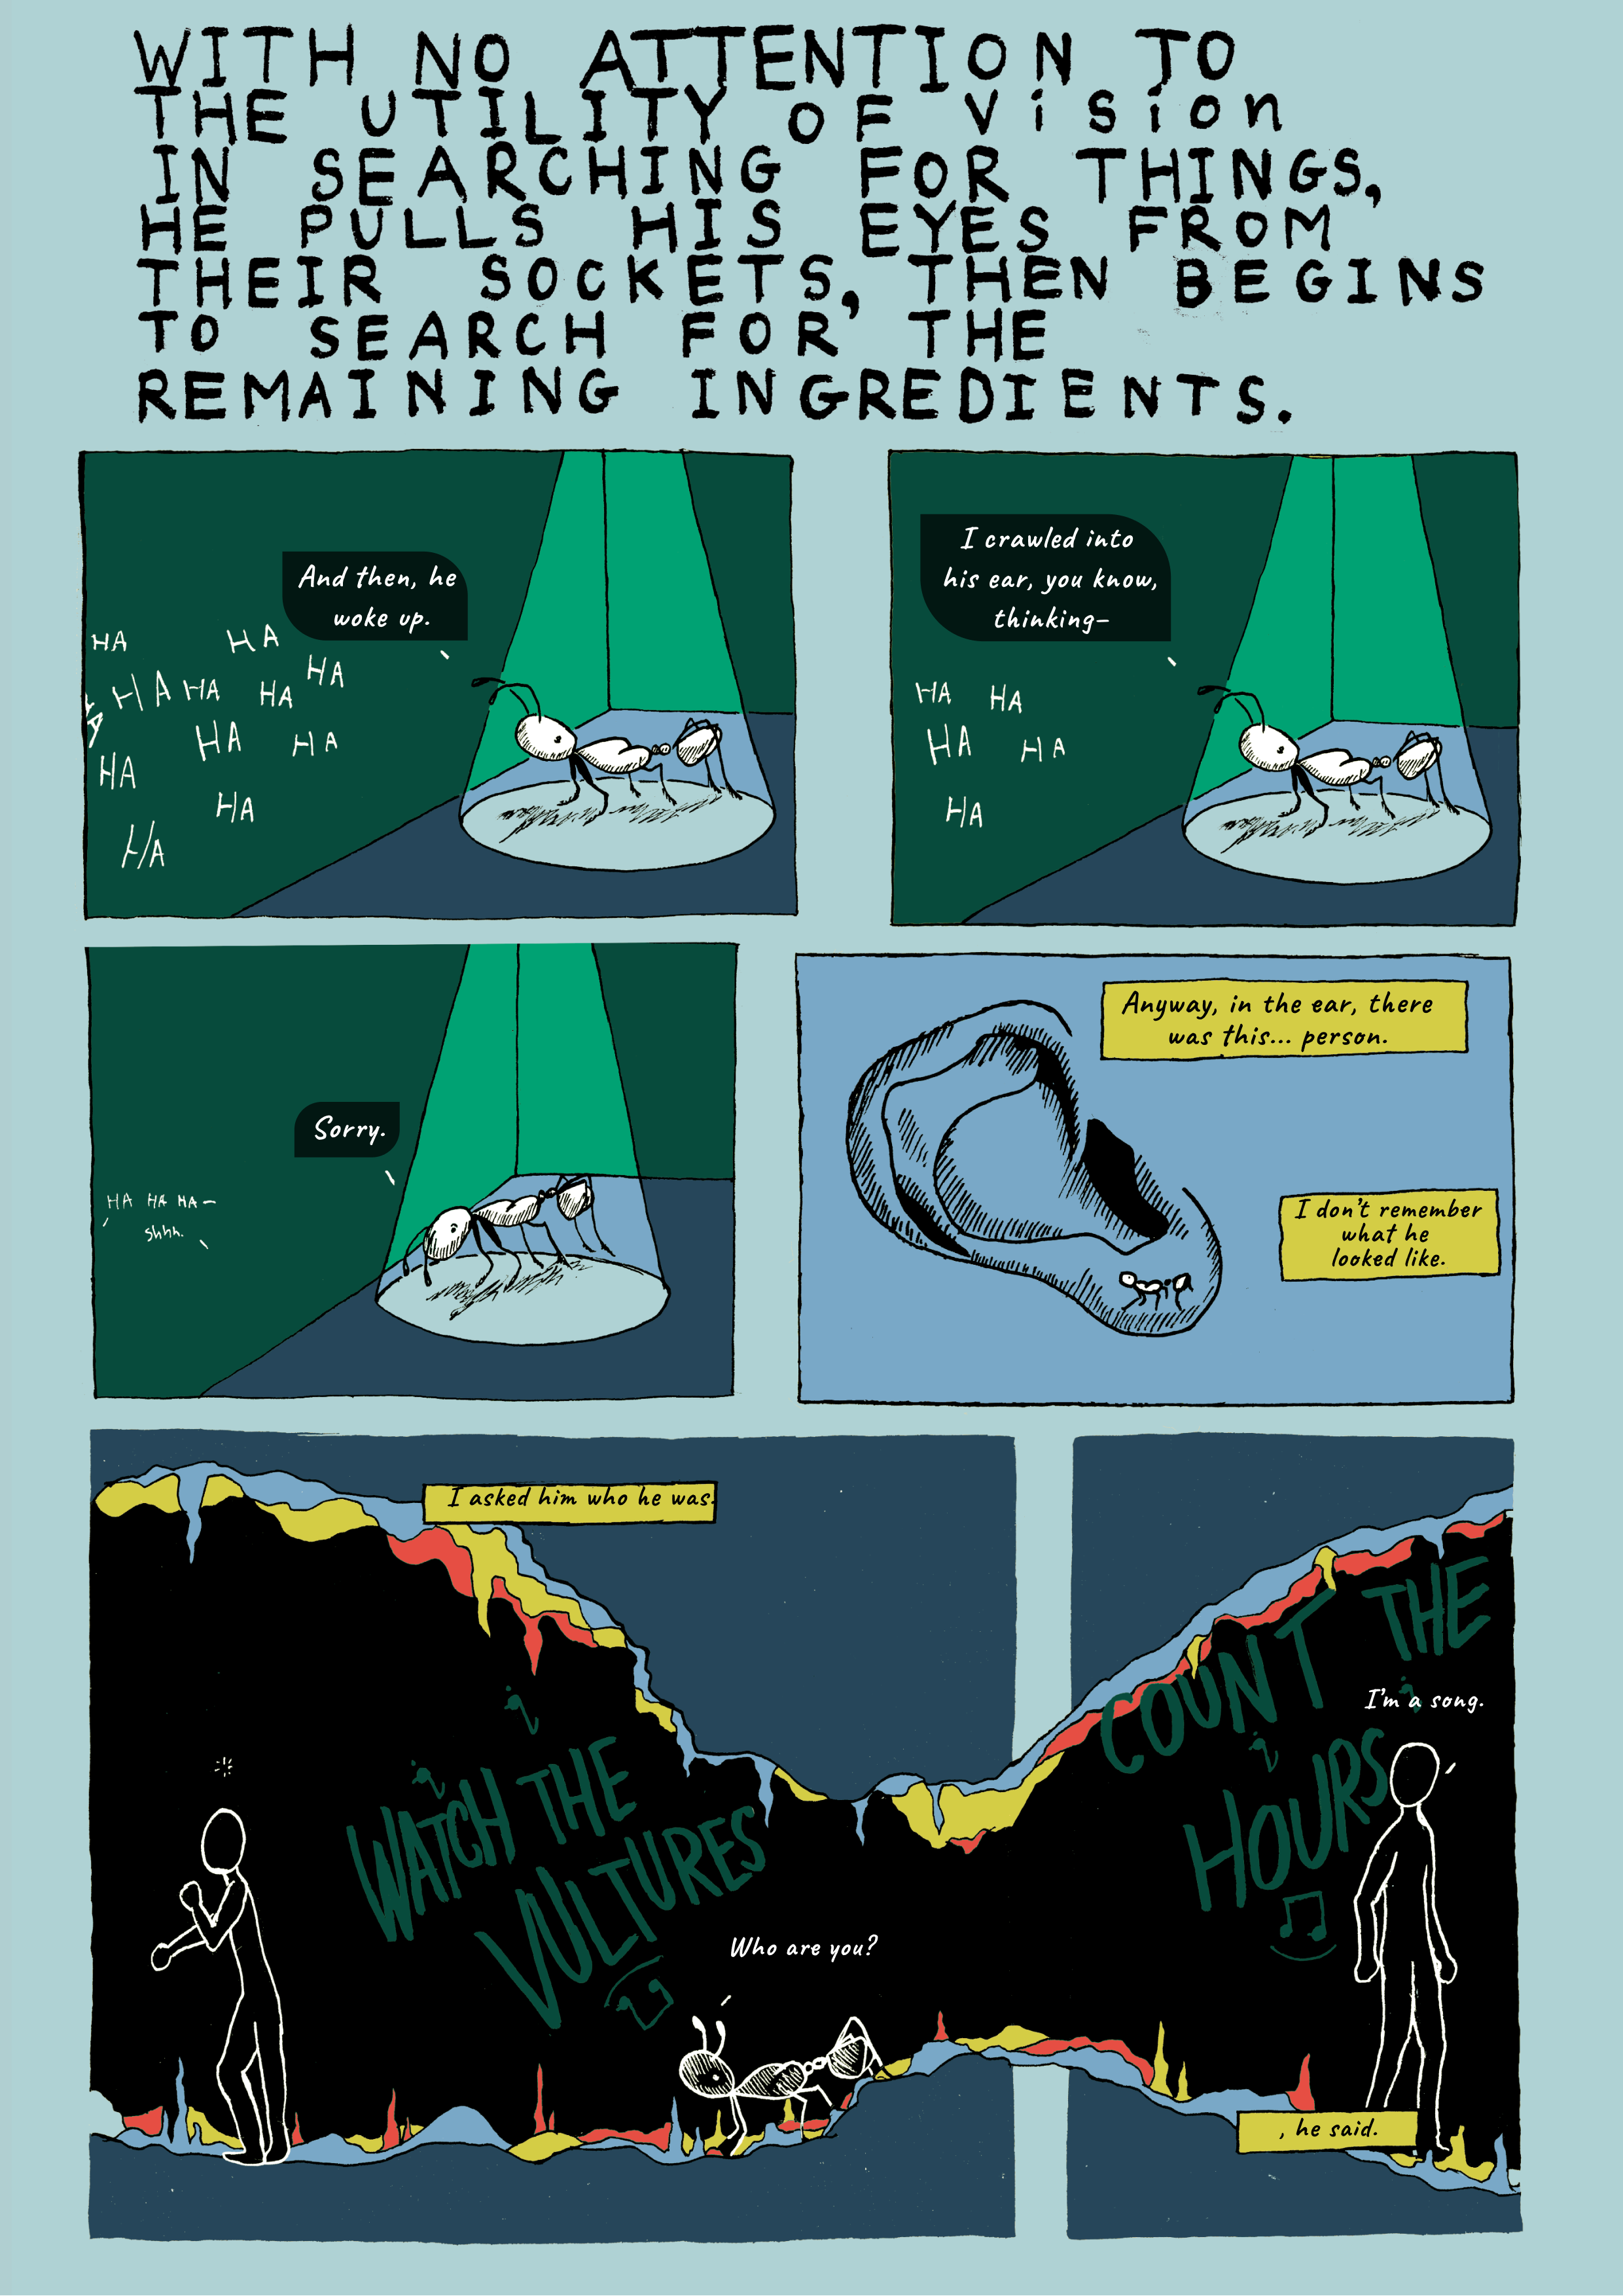 WITH NO ATTENTION TO
THE UTILITY OF Vision
IN SEARCHING FOR THINGS,
HE PULLS HIS EYES FROM
THEIR SOCKETS, THEN BEGINS
TO SEARCH FOR THE
REMAINING INGREDIENTS.
And then, he
woke up.
HA
HA
HA
HA
HA
HA
HA
HA
HA
HA
HA
HA
I crawled into
his ear, you know,
thinking–
HA
HA
HA
HA
HA
Sorry.
HA HA HA –
Shhh.
Anyway, in the ear, there
was this... person.
I don't remember
what he
looked like.
I asked him who he was.
WATCH THE
VULTURES
Who are you?
COUNT THE
HOURS
I'm a song.
, he said.